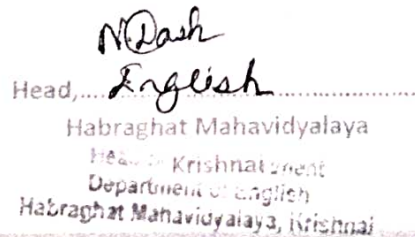 NDash
Head,....English..............
Habraghat Mahavidyalaya
Head Krishnai
Department of English
Habraghat Mahavidyalaya, Krishnai